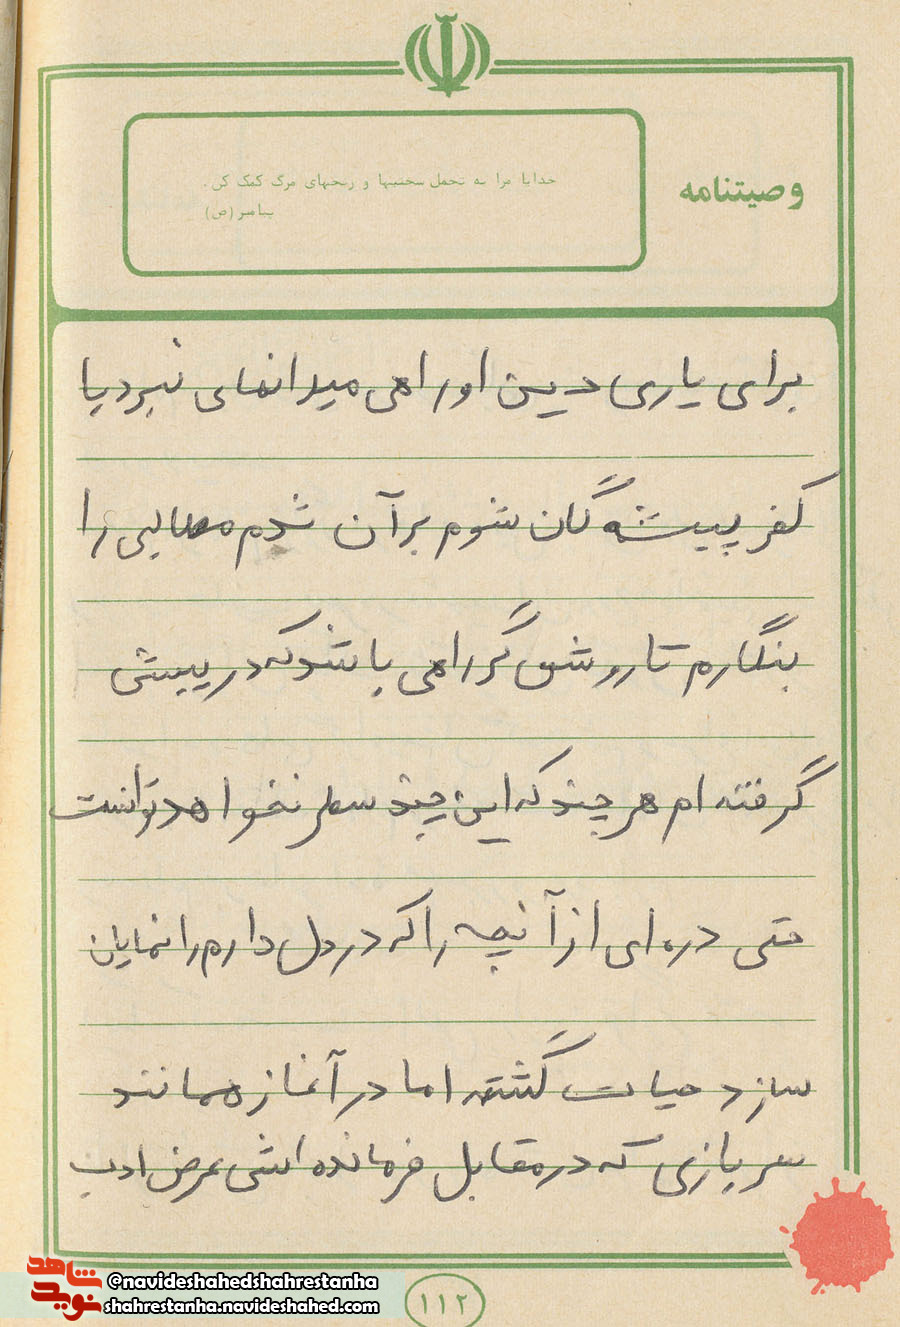 وصیتنامه
خدایا مرا به تحمل سختیها و رنجهای مرگ کمک کن.
پیامبر (ص)
برای یاری دین او راهی میدانهای نبرد با
کفر پیشه گان شوم بر آن شدم مطالبی را
بنگارم تا روشن گر راهی باشد که در پیش
گرفته ام هر چند که این چند سطر نخواهد توانست
حتی دره ای از آنچه را که در دل دارم را نمایان
سازد حیات گشته اما در آغاز همانند
سربازی که در مقابل فرمانده اش عرض ادب
۱۱۲
شاهد
نوید
@navideshahedshahrestanha
shahrestanha.navideshahed.com